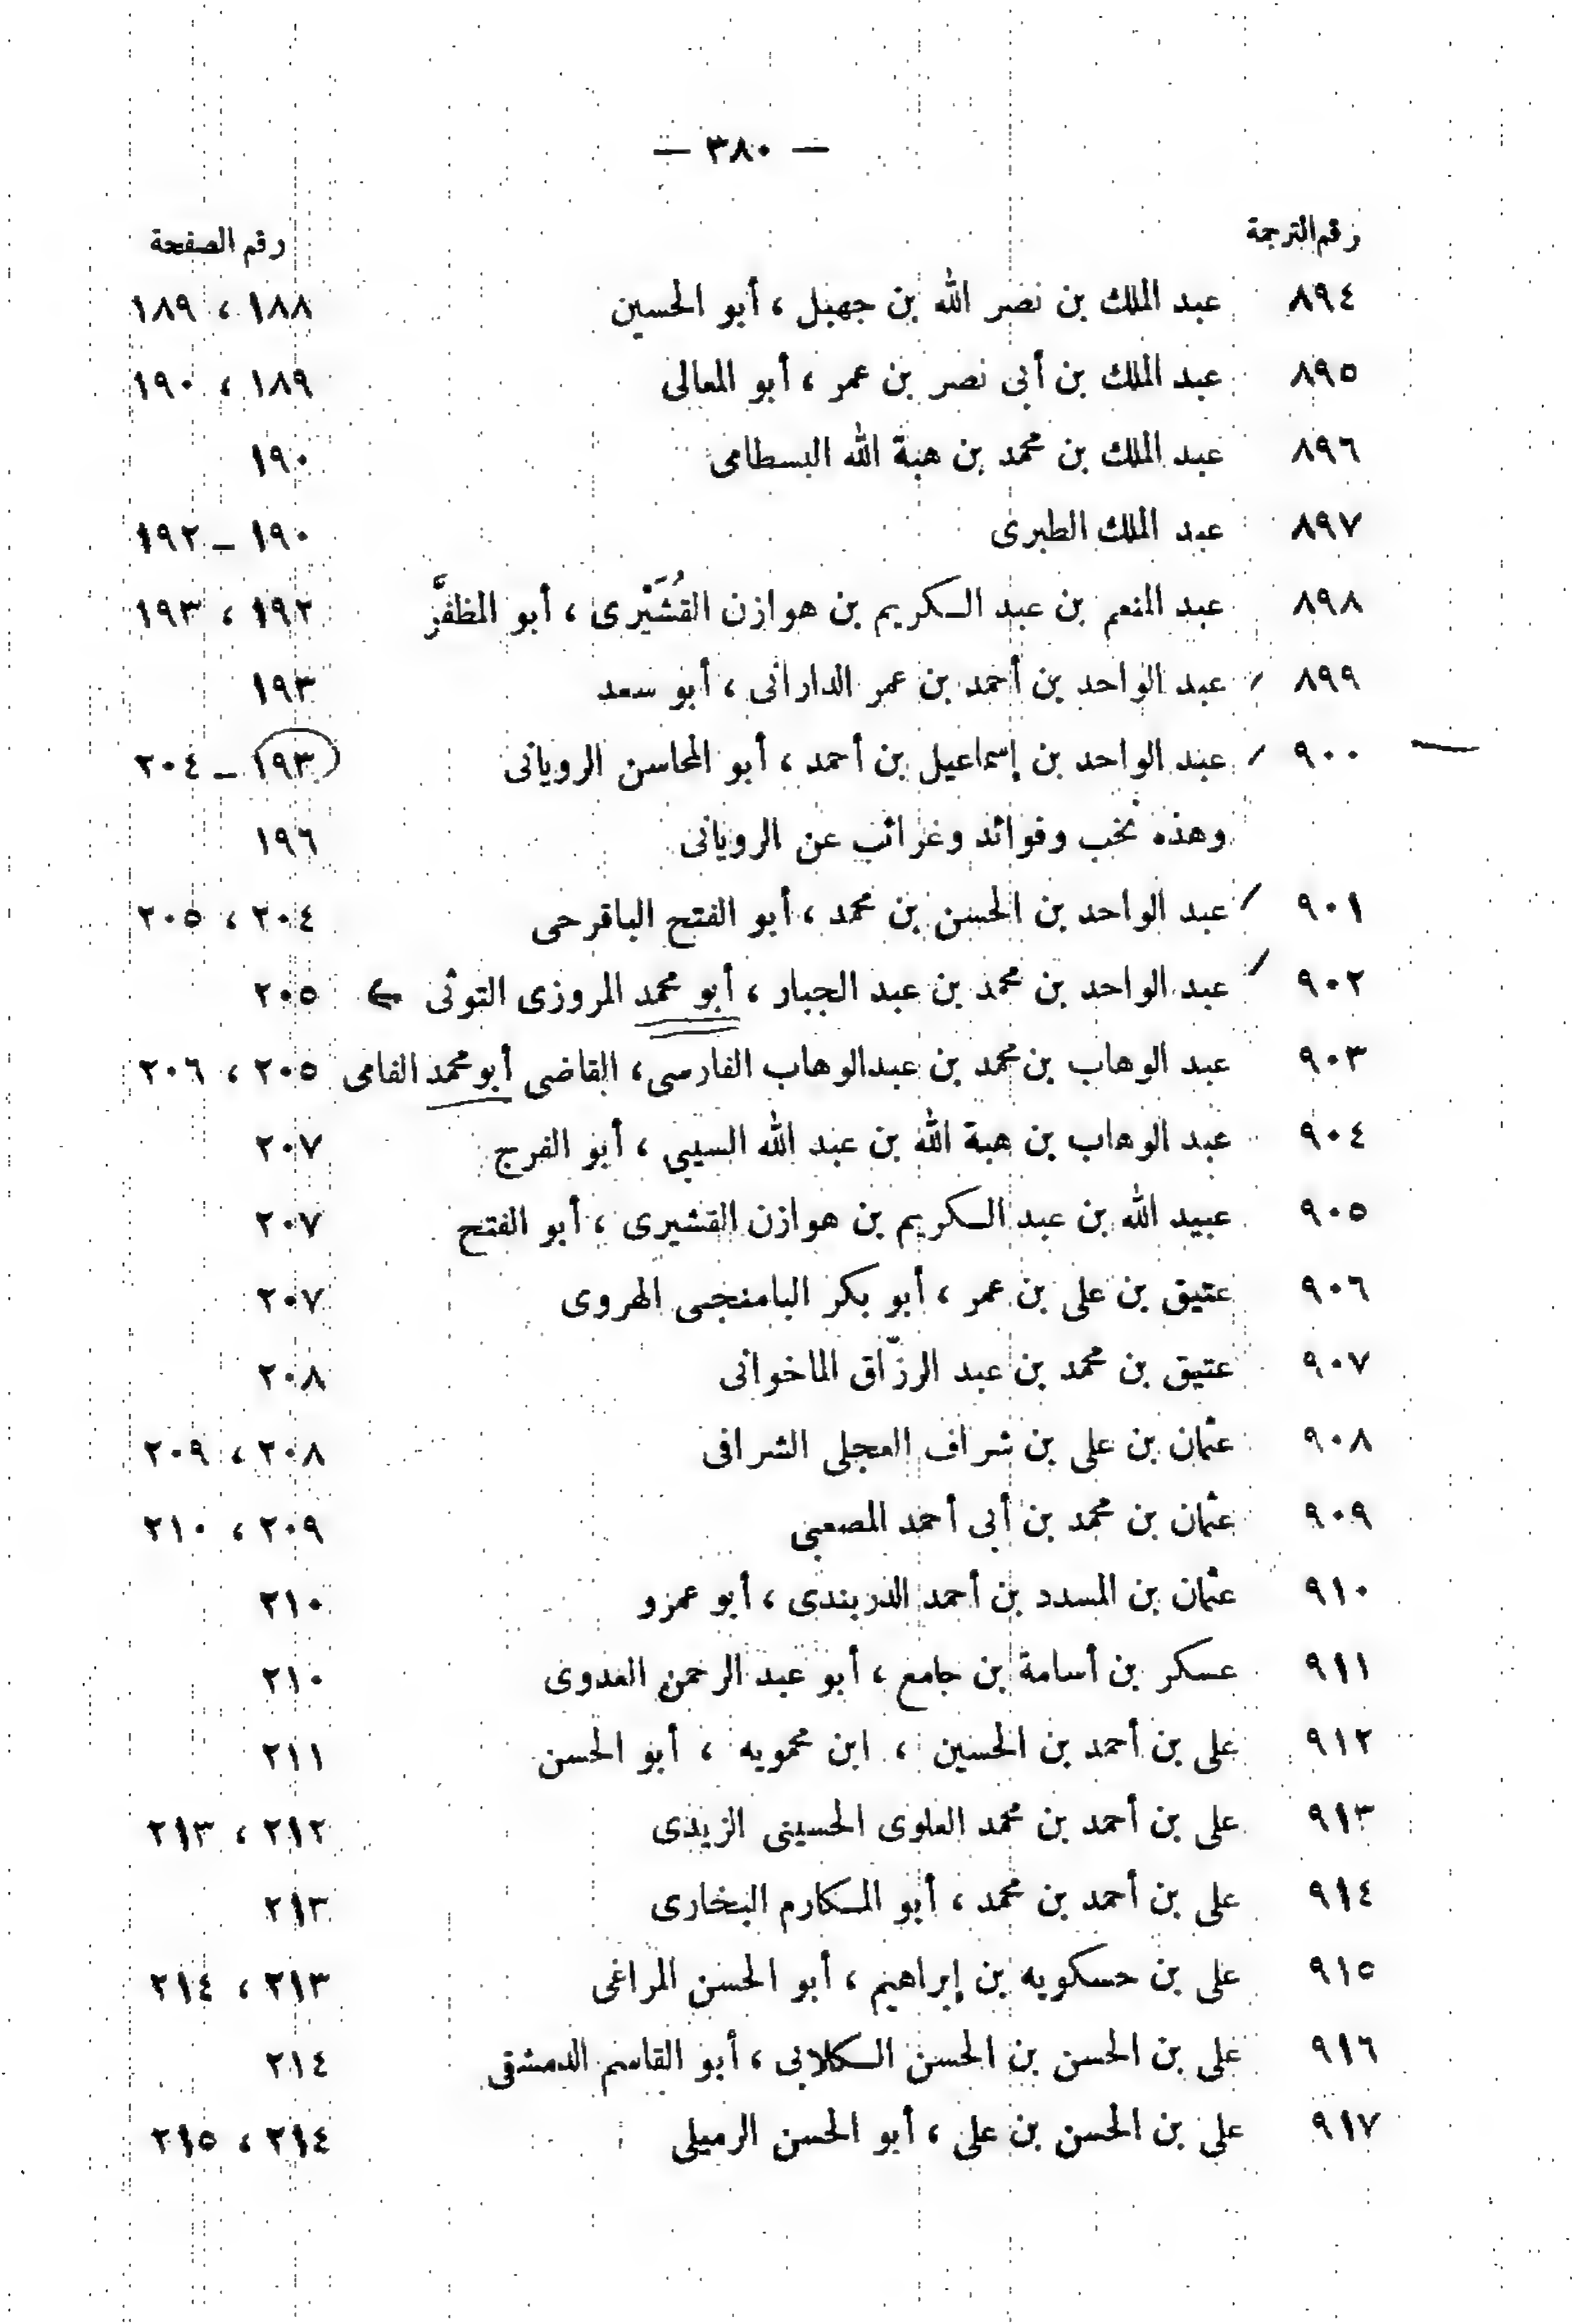 — ٣٨٠ —
رقم الترجمة رقم الصفحة
٨٩٤ عبد الملك بن نصر الله بن جهبل ، أبو الحسين ١٨٨ ، ١٨٩
٨٩٥ عبد الملك بن أبى نصر بن عمر ، أبو المعالى ١٨٩ ، ١٩٠
٨٩٦ عبد الملك بن محمد بن هبة الله البسطامى ١٩٠
٨٩٧ عبد الملك الطبرى ١٩٠ – ١٩٢
٨٩٨ عبد المنعم بن عبد الكريم بن هوازن القُشَيْرى ، أبو المظفَّر ١٩٢ ، ١٩٣
٨٩٩ عبد الواحد بن أحمد بن عمر الدارانى ، أبو سعد ١٩٣
٩٠٠ عبد الواحد بن إسماعيل بن أحمد ، أبو المحاسن الرويانى ١٩٣ – ٢٠٤
وهذه نُخب وفوائد وغرائب عن الرويانى ١٩٦
٩٠١ عبد الواحد بن الحسن بن محمد ، أبو الفتح الباقرحى ٢٠٤ ، ٢٠٥
٩٠٢ عبد الواحد بن محمد بن عبد الجبار ، أبو محمد المروزى التوثى ٢٠٥
٩٠٣ عبد الوهاب بن محمد بن عبدالوهاب الفارسى ، القاضى أبو محمد الفامى ٢٠٥ ، ٢٠٦
٩٠٤ عبد الوهاب بن هبة الله بن عبد الله السيبى ، أبو الفرج ٢٠٧
٩٠٥ عبيد الله بن عبد الكريم بن هوازن القشيرى ، أبو الفتح ٢٠٧
٩٠٦ عتيق بن على بن عمر ، أبو بكر البامنجى الهروى ٢٠٧
٩٠٧ عتيق بن محمد بن عبد الرزّاق الماخوانى ٢٠٨
٩٠٨ عثمان بن على بن شراف العجلى الشرافى ٢٠٨ ، ٢٠٩
٩٠٩ عثمان بن محمد بن أبى أحمد المصعبى ٢٠٩ ، ٢١٠
٩١٠ عثمان بن المسدد بن أحمد الدربندى ، أبو عمرو ٢١٠
٩١١ عسكر بن أسامة بن جامع ، أبو عبد الرحمن العدوى ٢١٠
٩١٢ على بن أحمد بن الحسين ، ابن محمويه ، أبو الحسن ٢١١
٩١٣ على بن أحمد بن محمد العلوى الحسينى الزيدى ٢١٢ ، ٢١٣
٩١٤ على بن أحمد بن محمد ، أبو المكارم البخارى ٢١٣
٩١٥ على بن حسكويه بن إبراهيم ، أبو الحسن المراغى ٢١٣ ، ٢١٤
٩١٦ على بن الحسن بن الحسن الكلابى ، أبو القاسم الدمشقى ٢١٤
٩١٧ على بن الحسن بن على ، أبو الحسن الرميلى ٢١٤ ، ٢١٥